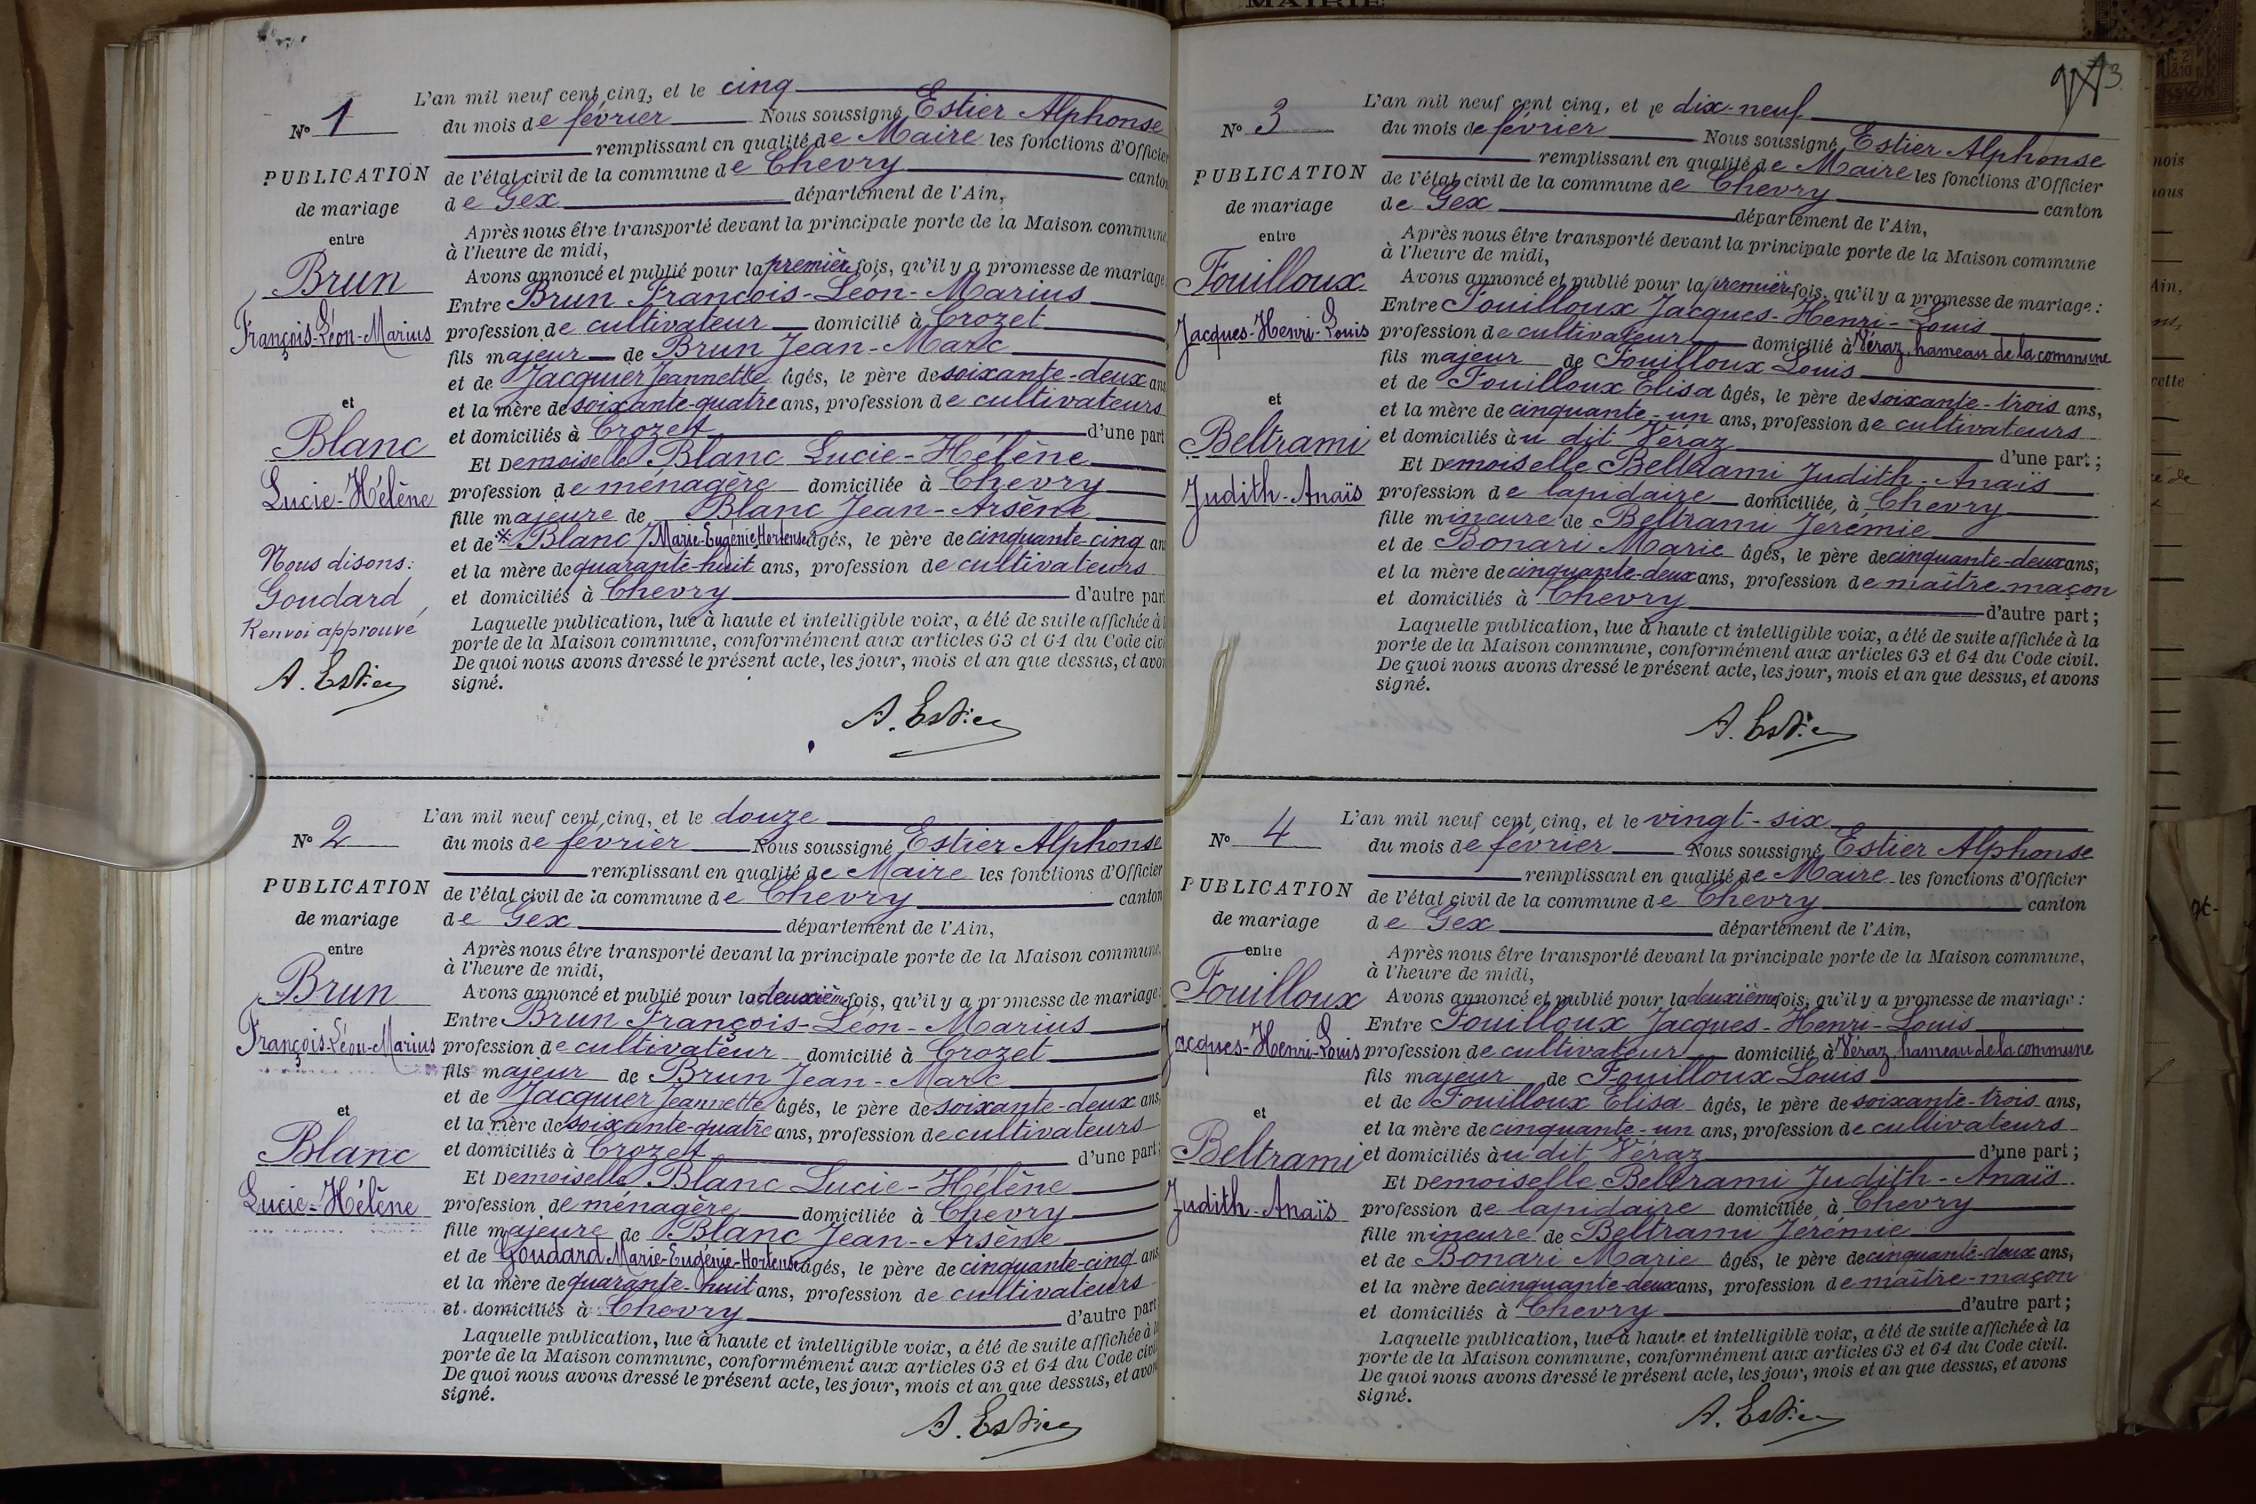 L'an mil neuf cent cinq, et le cinq
N° 1
du mois de février Nous soussigné Estier Alphonse
remplissant en qualité de Maire les fonctions d'Officier
PUBLICATION
de mariage
entre
Brun
François-Léon-Marius
et
Blanc
Lucie-Hélène
Nous disons:
Goudard
Renvoi approuvé
A. Estier
de l'état civil de la commune de Chevry canton
de Gex département de l'Ain,
Après nous être transporté devant la principale porte de la Maison commune
à l'heure de midi,
Avons annoncé et publié pour la première fois, qu'il y a promesse de mariage
Entre Brun François-Léon-Marius
profession de cultivateur domicilié à Crozet
fils majeur de Brun Jean-Marc
et de Jacquier Jeannette âgés, le père de soixante-deux ans
et la mère de soixante-quatre ans, profession de cultivateurs
et domiciliés à Crozet d'une part
Et Demoiselle Blanc Lucie-Hélène
profession de ménagère domiciliée à Chevry
fille majeure de Blanc Jean-Arsène
et de * Blanc / Marie-Eugénie-Hortense âgés, le père de cinquante-cinq an
et la mère de quarante-huit ans, profession de cultivateurs
et domiciliés à Chevry d'autre part
Laquelle publication, lue à haute et intelligible voix, a été de suite affichée à l
porte de la Maison commune, conformément aux articles 63 et 64 du Code civi
De quoi nous avons dressé le présent acte, les jour, mois et an que dessus, et avon
signé.
A. Estier
L'an mil neuf cent cinq, et le douze
N° 2
du mois de février Nous soussigné Estier Alphonse
remplissant en qualité de Maire les fonctions d'Officier
PUBLICATION
de mariage
entre
Brun
François-Léon-Marius
et
Blanc
Lucie-Hélène
de l'état civil de la commune de Chevry canton
de Gex département de l'Ain,
Après nous être transporté devant la principale porte de la Maison commune,
à l'heure de midi,
Avons annoncé et publié pour la deuxième fois, qu'il y a promesse de mariage:
Entre Brun François-Léon-Marius
profession de cultivateur domicilié à Crozet
fils majeur de Brun Jean-Marc
et de Jacquier Jeannette âgés, le père de soixante-deux ans,
et la mère de soixante-quatre ans, profession de cultivateurs
et domiciliés à Crozet d'une part;
Et Demoiselle Blanc Lucie-Hélène
profession de ménagère domiciliée à Chevry
fille majeure de Blanc Jean-Arsène
et de Goudard Marie-Eugénie-Hortense âgés, le père de cinquante-cinq ans
et la mère de quarante-huit ans, profession de cultivateurs
et domiciliés à Chevry d'autre part
Laquelle publication, lue à haute et intelligible voix, a été de suite affichée à la
porte de la Maison commune, conformément aux articles 63 et 64 du Code civil
De quoi nous avons dressé le présent acte, les jour, mois et an que dessus, et avons
signé.
A. Estier
MAIRIE
3
L'an mil neuf cent cinq, et le dix-neuf
N° 3
du mois de février Nous soussigné Estier Alphonse
remplissant en qualité de Maire les fonctions d'Officier
PUBLICATION
de mariage
entre
Fouilloux
Jacques-Henri-Louis
et
Beltrami
Judith-Anaïs
de l'état civil de la commune de Chevry canton
de Gex département de l'Ain,
Après nous être transporté devant la principale porte de la Maison commune
à l'heure de midi,
Avons annoncé et publié pour la première fois, qu'il y a promesse de mariage:
Entre Fouilloux Jacques-Henri-Louis
profession de cultivateur domicilié à Véraz, hameau de la commune
fils majeur de Fouilloux Louis
et de Fouilloux Elisa âgés, le père de soixante-trois ans,
et la mère de cinquante-un ans, profession de cultivateurs
et domiciliés àu dit Véraz d'une part;
Et Demoiselle Beltrami Judith-Anaïs
profession de lapidaire domiciliée à Chevry
fille mineure de Beltrami Jérémie
et de Bonari Marie âgés, le père de cinquante-deux ans,
et la mère de cinquante-deux ans, profession de maître maçon
et domiciliés à Chevry d'autre part;
Laquelle publication, lue à haute et intelligible voix, a été de suite affichée à la
porte de la Maison commune, conformément aux articles 63 et 64 du Code civil.
De quoi nous avons dressé le présent acte, les jour, mois et an que dessus, et avons
signé.
A. Estier
L'an mil neuf cent cinq, et le vingt-six
N° 4
du mois de février Nous soussigné Estier Alphonse
remplissant en qualité de Maire les fonctions d'Officier
PUBLICATION
de mariage
entre
Fouilloux
Jacques-Henri-Louis
et
Beltrami
Judith-Anaïs
de l'état civil de la commune de Chevry canton
de Gex département de l'Ain,
Après nous être transporté devant la principale porte de la Maison commune,
à l'heure de midi,
Avons annoncé et publié pour la deuxième fois, qu'il y a promesse de mariage:
Entre Fouilloux Jacques-Henri-Louis
profession de cultivateur domicilié à Véraz, hameau de la commune
fils majeur de Fouilloux Louis
et de Fouilloux Elisa âgés, le père de soixante-trois ans,
et la mère de cinquante-un ans, profession de cultivateurs
et domiciliés àu dit Véraz d'une part;
Et Demoiselle Beltrami Judith-Anaïs
profession de lapidaire domiciliée à Chevry
fille mineure de Beltrami Jérémie
et de Bonari Marie âgés, le père de cinquante-deux ans,
et la mère de cinquante-deux ans, profession de maître-maçon
et domiciliés à Chevry d'autre part;
Laquelle publication, lue à haute et intelligible voix, a été de suite affichée à la
porte de la Maison commune, conformément aux articles 63 et 64 du Code civil.
De quoi nous avons dressé le présent acte, les jour, mois et an que dessus, et avons
signé.
A. Estier